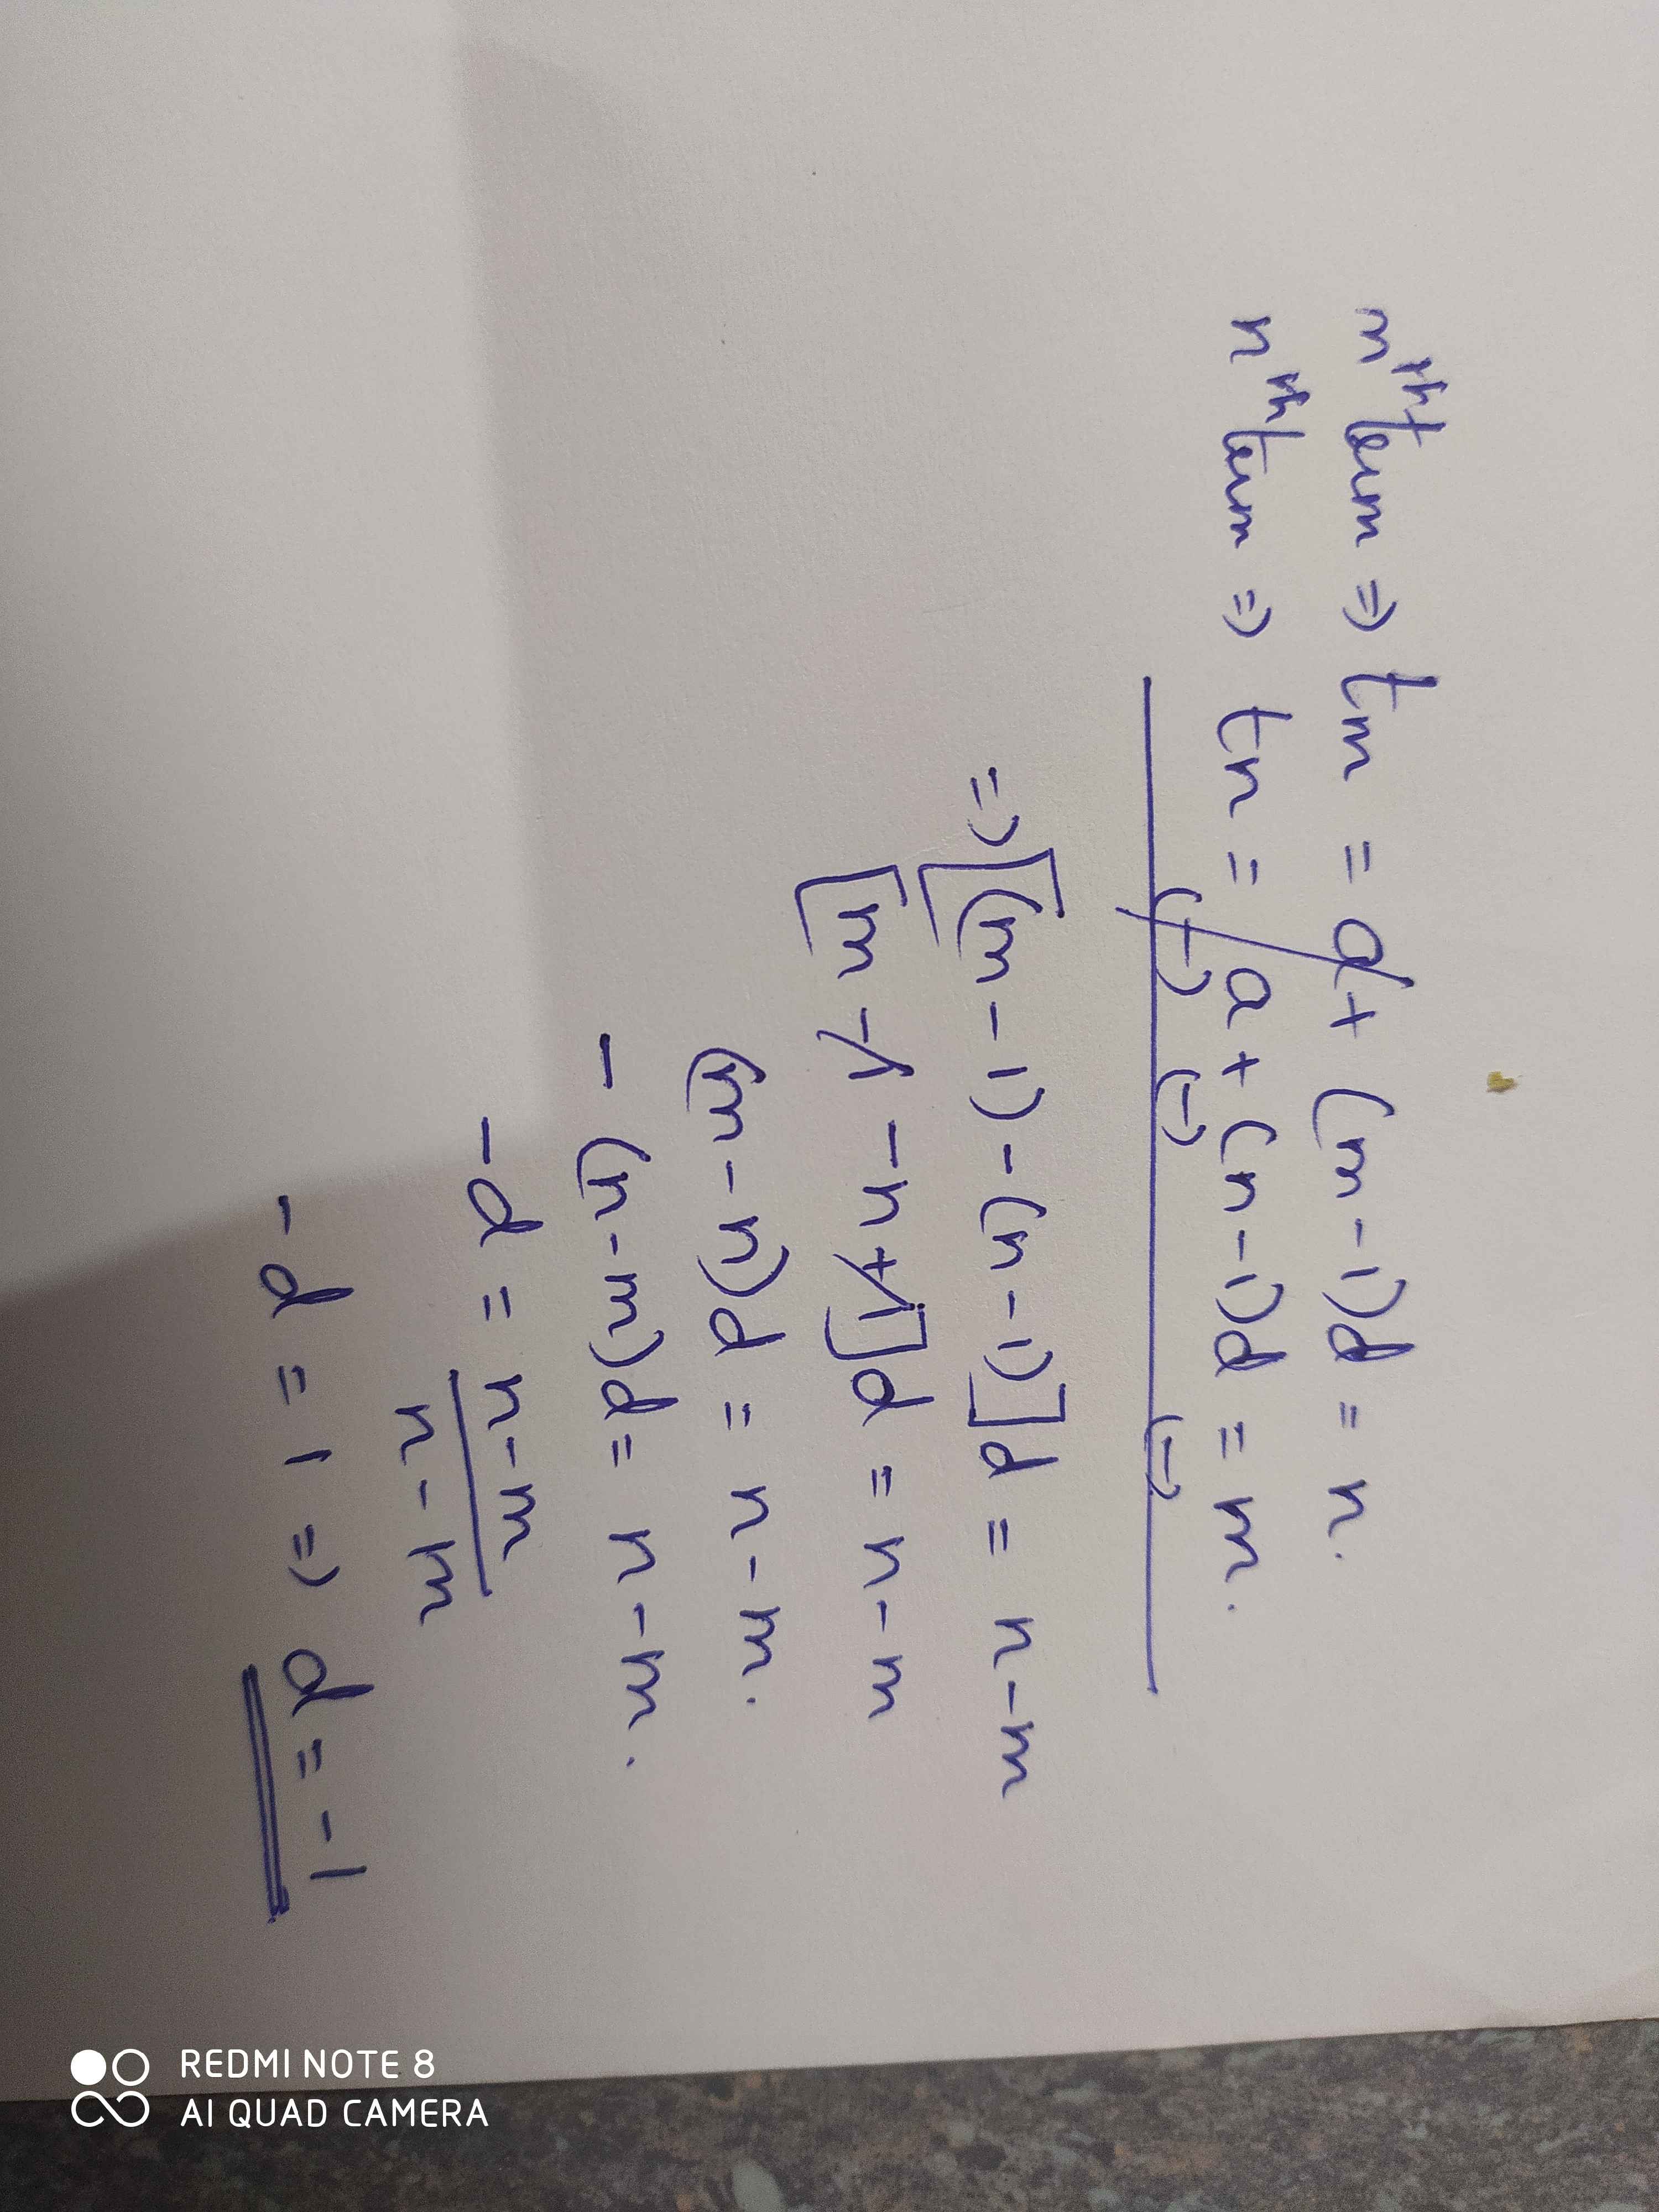 mth term ⇒ tm = a + (m-1)d = n.
nth term ⇒ tn = a + (n-1)d = m.
(-) (-) (-)
⇒ [(m-1)-(n-1)]d = n-m
[m-1-n+1]d = n-m
(m-n)d = n-m.
-(n-m)d = n-m.
-d = n-m
n-m
-d = 1 ⇒ d = -1
REDMI NOTE 8
AI QUAD CAMERA